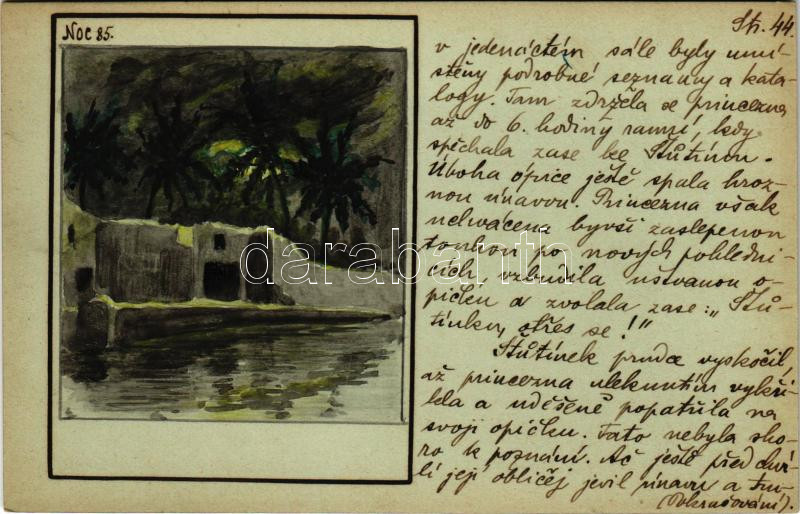 Noc 85.
Str. 44.
v jedenáctém sále byly umí-
stěny podrobné seznamy a kata-
logy. Tam zdržela se princezna
až do 6. hodiny ranní, kdy
spěchala zase ke Štůtínku.
Úboha opice ještě spala hroz-
nou únavou. Princezna však
nelwácena byvši zaslepenou
touhou po nových pohledni-
cích, vzbudila uštvanou o-
pičku a zvolala zase: „Štů-
tínku, otřes se!"
Štůtínek prudce vyskočil,
až princezna uleknutím vykři-
kla a uděšeně popatřila na
svoji opičku. Tato nebyla sko-
ro k poznání. Ač ještě před chví-
lí její obličej jevil únavu a
(Pokračování).
darabanth